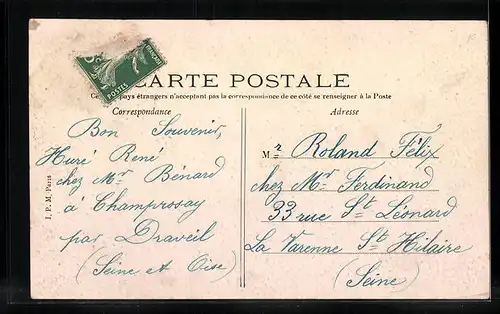 CARTE POSTALE
pays étrangers n'acceptant pas la correspondance de ce côté se renseigner à la Poste
Correspondance
Adresse
Bon Souvenir,
Huré René
chez Mr Bénard
à Champrosay
par Draveil
(Seine et Oise)
I. P. M. Paris
Mr Roland Félix
chez Mr Ferdinand
33 rue St Léonard
La Varenne St Hilaire
(Seine)
5c
POSTES